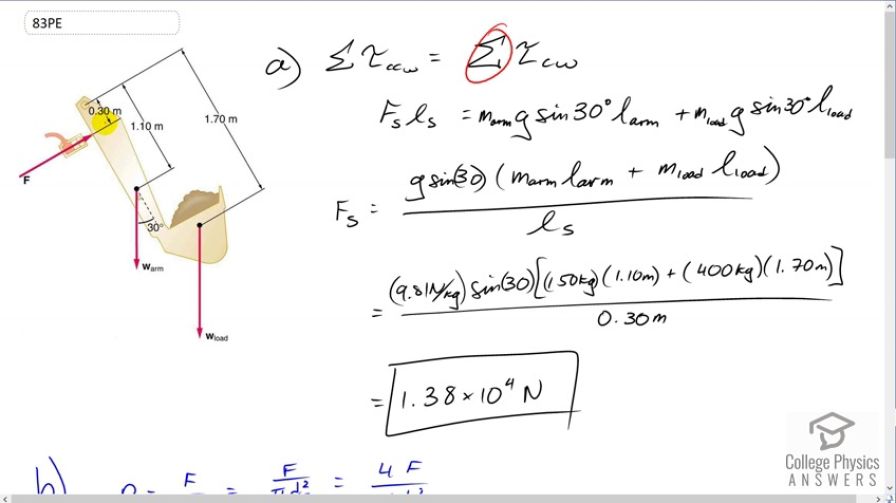 83PE
a) Σ τccw = Σ τcw
0.30 m
1.10 m
1.70 m
F
30°
warm
wload
Fs ls = marm g sin30° larm + mload g sin30° lload
Fs = g sin(30) (marm larm + mload lload) / ls
= (9.81N/kg) sin(30) [(150kg)(1.10m) + (400kg)(1.70m)] / 0.30m
= 1.38 × 10⁴ N
b)
F = F = 4F
College Physics
ANSWERS